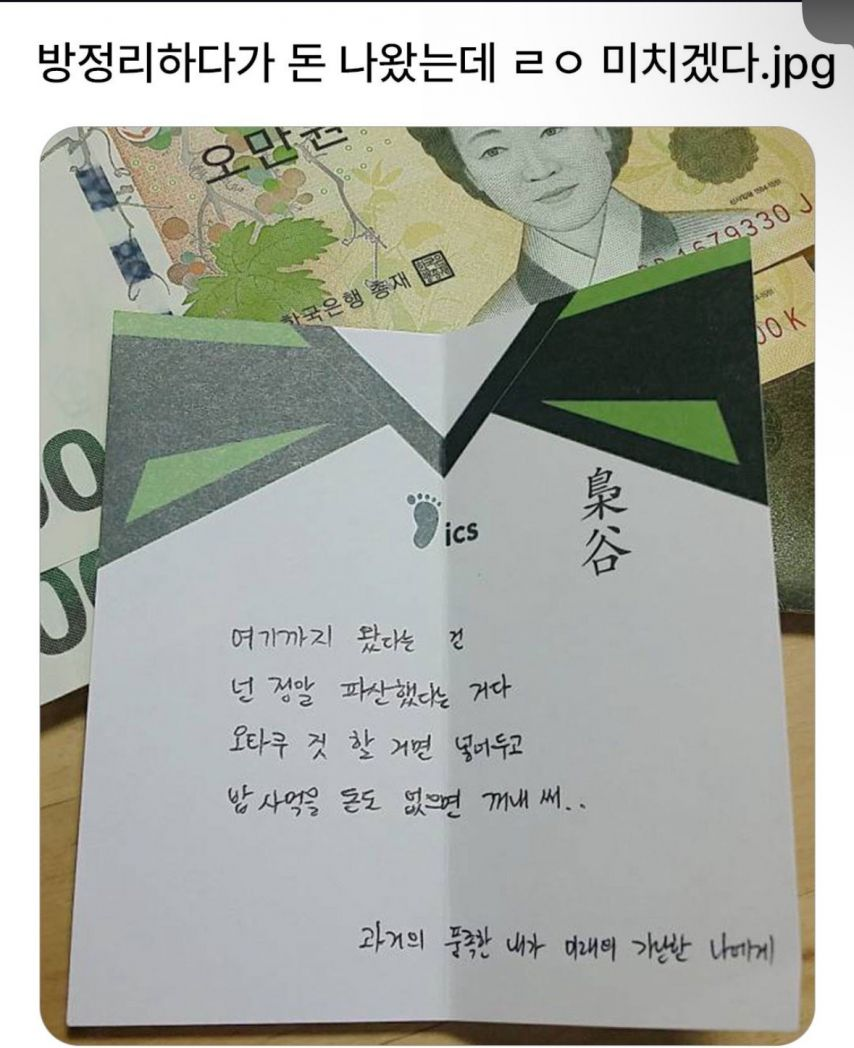 방정리하다가 돈 나왔는데 ㄹㅇ 미치겠다.jpg
오만원
한국은행 총재
1679330 J
00 K
00
00
ics
梟谷
여기까지 왔다는 건
넌 정말 파산했다는 거다
오타쿠 짓 할 거면 넣어두고
밥 사먹을 돈도 없으면 꺼내 써..
과거의 풍족한 내가 미래의 가난한 나에게